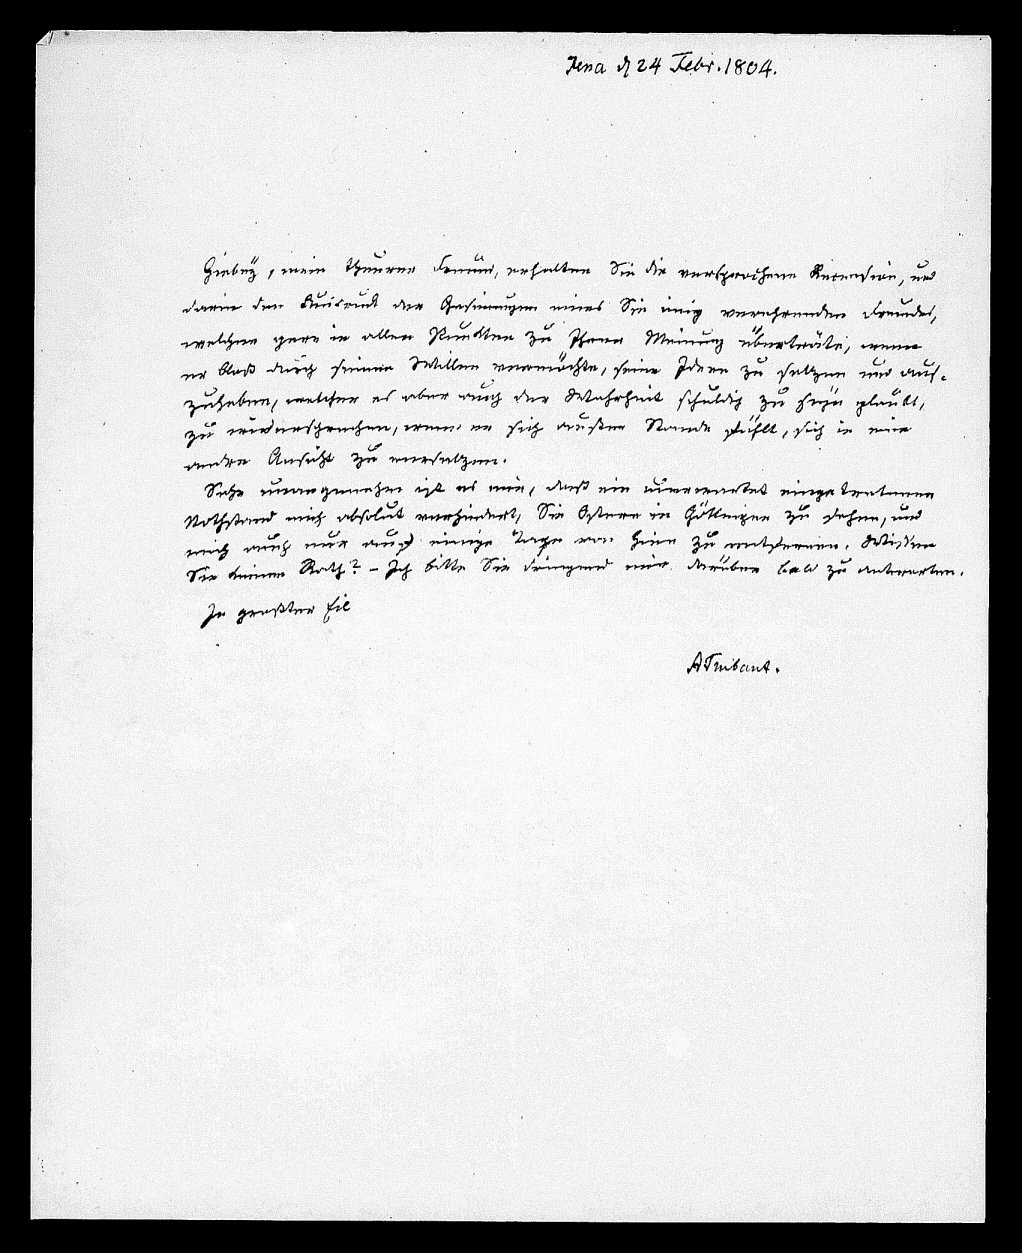 Jena d 24 Febr. 1804.
Hiebey, mein theurer Freund, erhalten Sie die versprochene Recension, und
darin den Ausdruck der Gesinnungen eines Sie innig verehrenden Freundes,
welcher gern in allen Punkten zu Ihrer Meinung überträte, wenn
er bloß durch seinen Willen vermöchte, seine Ideen zu setzen und auf-
zuheben, welcher es aber auch der Wahrheit schuldig zu seyn glaubt,
zu widersprechen, wenn er sich außer Stande fühlt, sich in eine
andre Ansicht zu versetzen.
Sehr unangenehm ist es mir, daß ein unerwartet eingetretener
Nothstand mich absolut verhindert, Sie Ostern in Göttingen zu sehen, und
mich auch nur auf einige Tage von hier zu entfernen. Wissen
Sie keinen Rath? – Ich bitte Sie dringend mir darüber bald zu antworten.
In großter Eil
AThibaut.